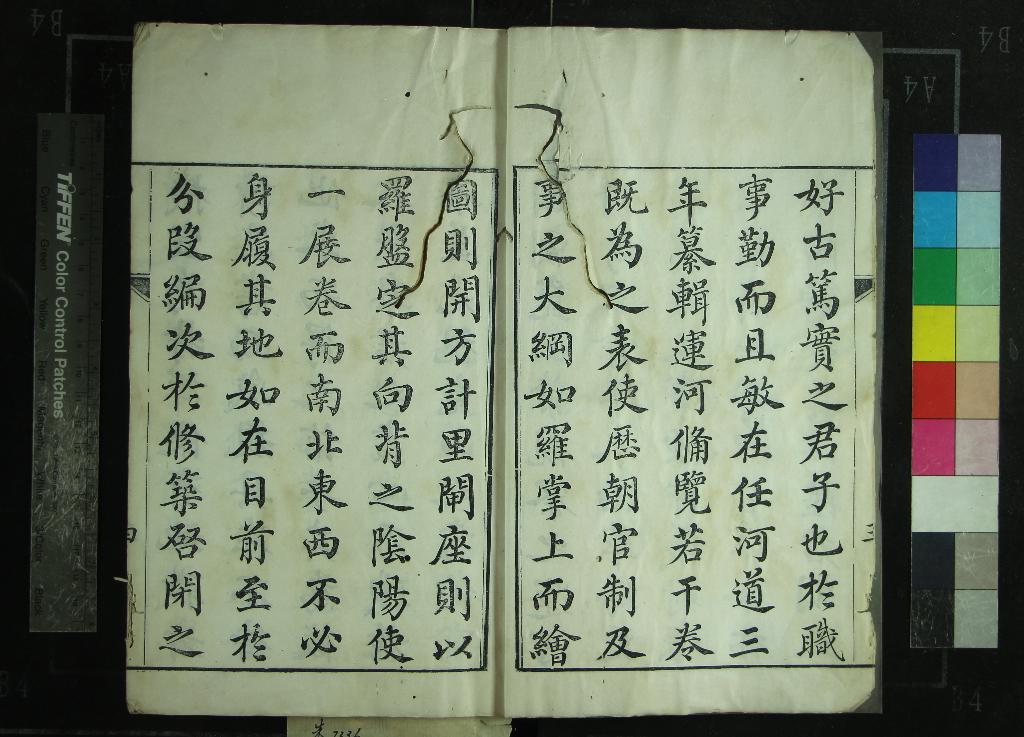 好古篤實之君子也於職
事勤而且敏在任河道三
年纂輯運河備覽若干卷
既為之表使歷朝官制及
事之大綱如羅掌上而繪
圖則開方計里閘座則以
羅盤定其向背之陰陽使
一展卷而南北東西不必
身履其地如在目前至於
分段編次於修築啓閉之
TIFFEN Color Control Patches
Blue
Cyan
Green
Yellow
Red
Magenta
Black
B4
A4
B4
A4
B4
B4